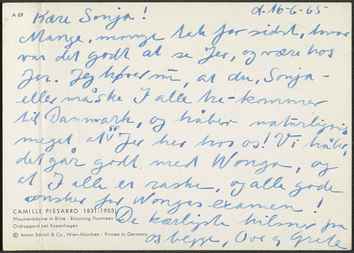 A 69
d. 16-6-65
Kære Sonja!
Mange, mange tak for sidst, hvor
var det godt at se Jer, og være hos
Jer. Jeg hører nu, at du, Sonja -
eller måske I alle tre - kommer
til Danmark, og håber naturligvis
meget at I er her hos os! Vi håber,
det går godt med Wonga, og
at I alle er raske, og alle gode
ønsker for Wongas examen!
De kærligste hilsner fra
os begge, Ove og Grete
CAMILLE PISSARRO 1831-(1903)
Pflaumenbäume in Blüte · Blooming Plumtrees
Ordrupgaard bei Kopenhagen
© Anton Schroll & Co., Wien-München · Printed in Germany